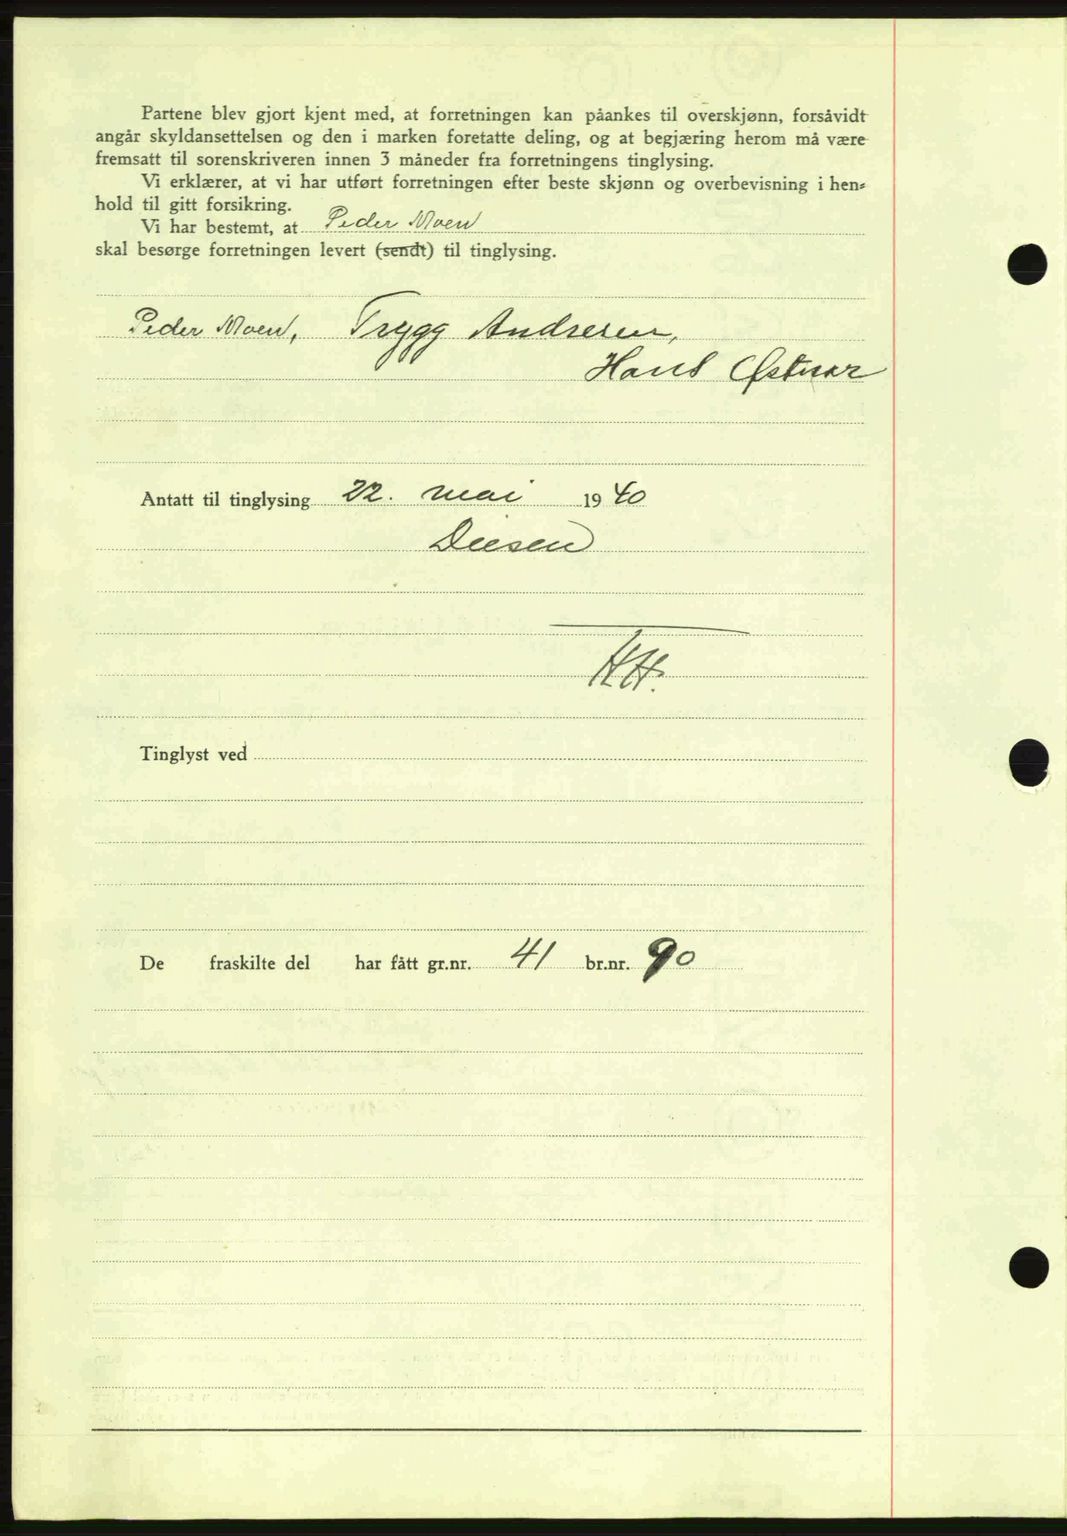 Partene blev gjort kjent med, at forretningen kan påankes til overskjønn, forsåvidt
angår skyldansettelsen og den i marken foretatte deling, og at begjæring herom må være
fremsatt til sorenskriveren innen 3 måneder fra forretningens tinglysing.
Vi erklærer, at vi har utført forretningen efter beste skjønn og overbevisning i hen-
hold til gitt forsikring.
Vi har bestemt, at Peder Moen
skal besørge forretningen levert (sendt) til tinglysing.
Peder Moen, Trygg Andresen,
Hans
Antatt til tinglysing 22. mai 1940
Diesen
HH.
Tinglyst ved
De fraskilte del har fått gr.nr. 41 br.nr. 90